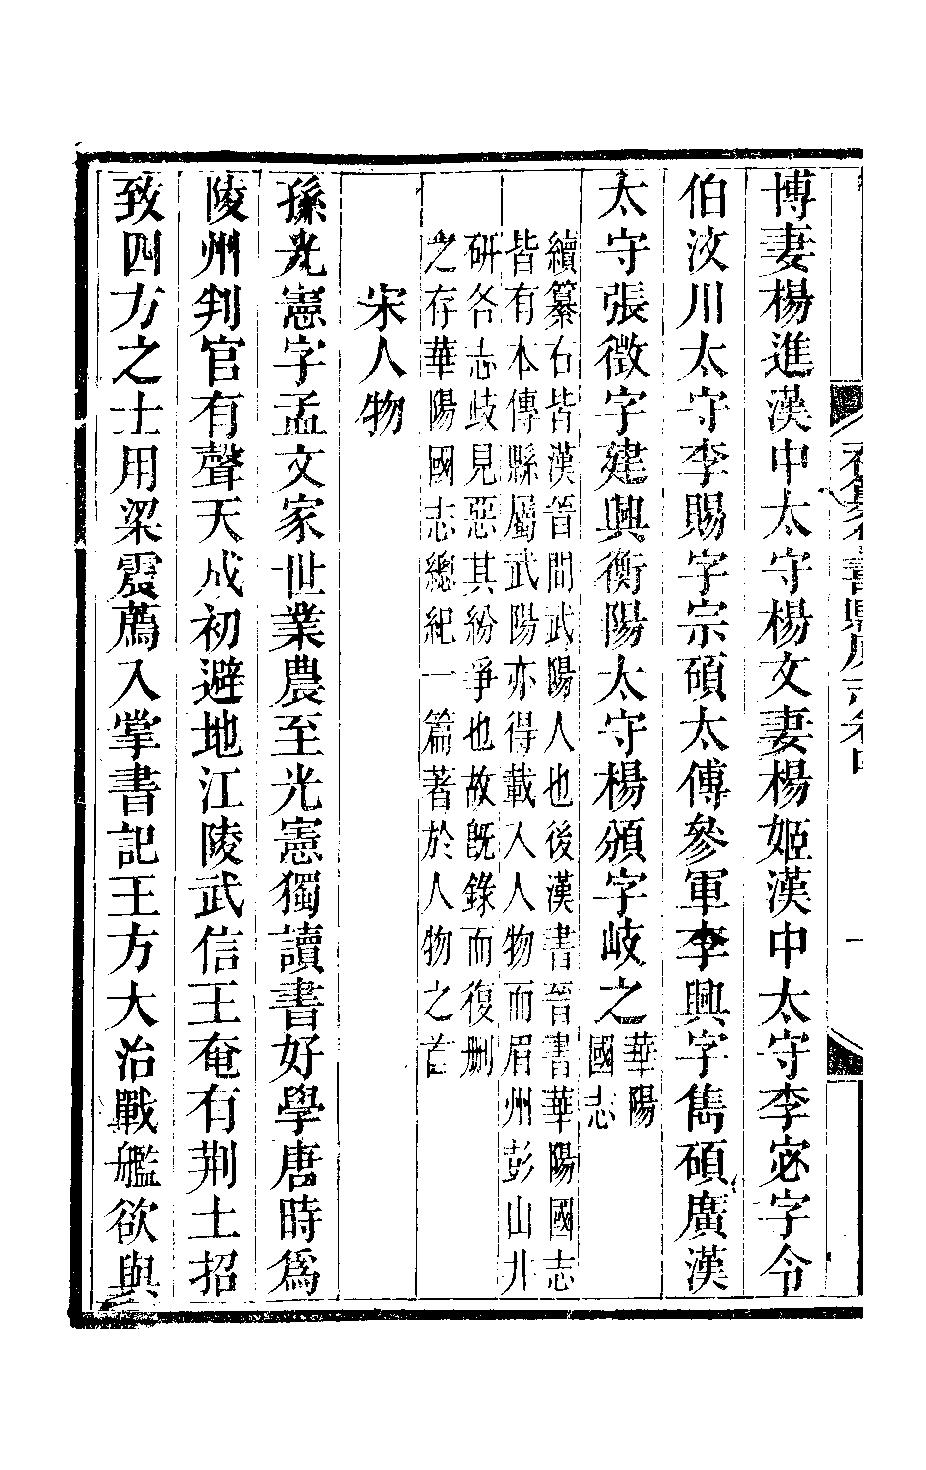 博妻楊進漢中太守楊文妻楊姬漢中太守李宓字令
伯汶川太守李賜字宗碩太傅參軍李興字雋碩廣漢
太守張徵字建興衡陽太守楊頒字岐之華陽
國志
續纂右皆漢晉間武陽人也後漢書晉書華陽國志
皆有本傳縣屬武陽亦得載入人物而眉州彭山井
研各志歧見惡其紛爭也故旣錄而復刪
之存華陽國志總紀一篇著於人物之首
宋人物
孫光憲字孟文家世業農至光憲獨讀書好學唐時爲
陵州判官有聲天成初避地江陵武信王奄有荆土招
致四方之士用梁震薦入掌書記王方大治戰艦欲與